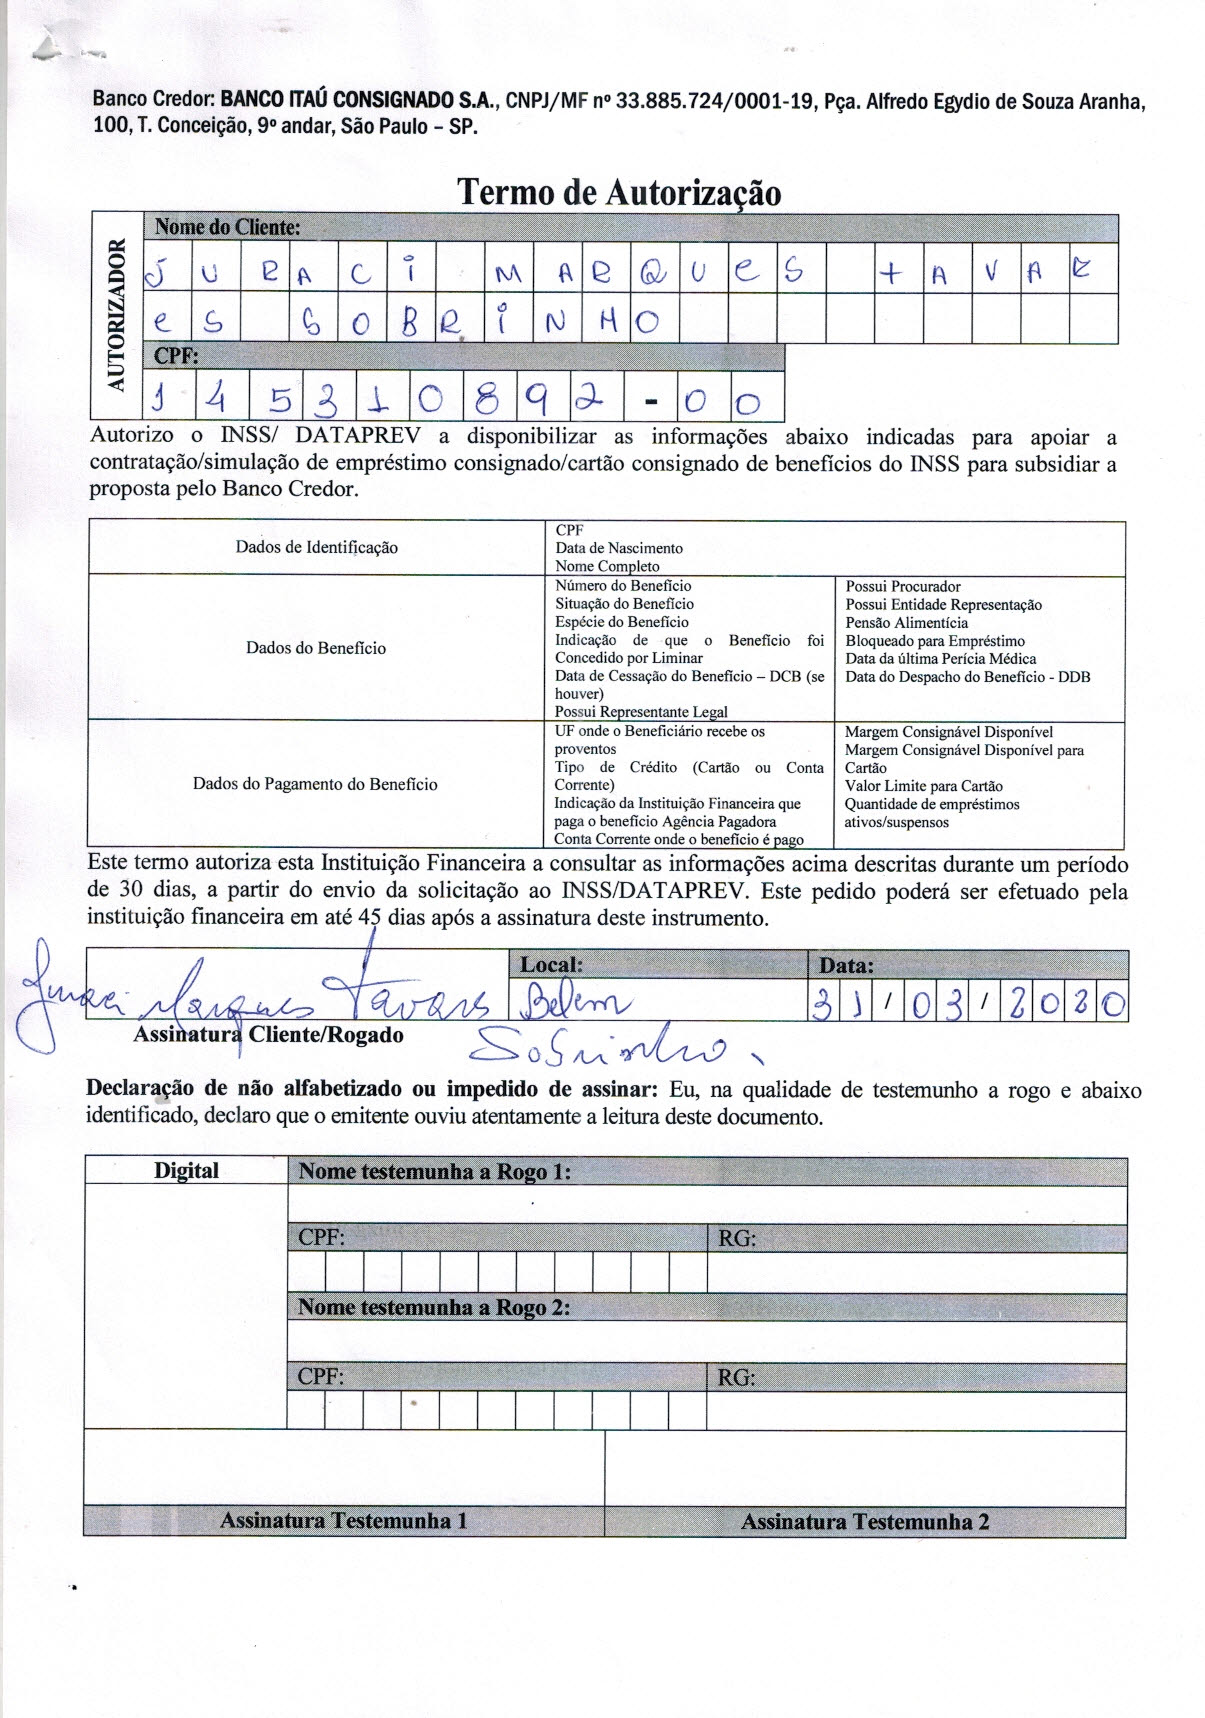 Banco Credor: BANCO ITAÚ CONSIGNADO S.A., CNPJ/MF nº 33.885.724/0001-19, Pça. Alfredo Egydio de Souza Aranha,
100, T. Conceição, 9º andar, São Paulo – SP.
Termo de Autorização
AUTORIZADOR
Nome do Cliente:
JURACi MARQUeS tAVAR
eS SOBRiNHO
CPF:
145310892-00
Autorizo o INSS/ DATAPREV a disponibilizar as informações abaixo indicadas para apoiar a
contratação/simulação de empréstimo consignado/cartão consignado de benefícios do INSS para subsidiar a
proposta pelo Banco Credor.
Dados de Identificação
CPF
Data de Nascimento
Nome Completo
Dados do Benefício
Número do Benefício
Situação do Benefício
Espécie do Benefício
Indicação de que o Benefício foi
Concedido por Liminar
Data de Cessação do Benefício – DCB (se
houver)
Possui Representante Legal
Possui Procurador
Possui Entidade Representação
Pensão Alimentícia
Bloqueado para Empréstimo
Data da última Perícia Médica
Data do Despacho do Benefício - DDB
Dados do Pagamento do Benefício
UF onde o Beneficiário recebe os
proventos
Tipo de Crédito (Cartão ou Conta
Corrente)
Indicação da Instituição Financeira que
paga o benefício Agência Pagadora
Conta Corrente onde o benefício é pago
Margem Consignável Disponível
Margem Consignável Disponível para
Cartão
Valor Limite para Cartão
Quantidade de empréstimos
ativos/suspensos
Este termo autoriza esta Instituição Financeira a consultar as informações acima descritas durante um período
de 30 dias, a partir do envio da solicitação ao INSS/DATAPREV. Este pedido poderá ser efetuado pela
instituição financeira em até 45 dias após a assinatura deste instrumento.
Local: Data:
Juraci Marques Tavares Belem 31/03/2020
Assinatura Cliente/Rogado Sobrinho
Declaração de não alfabetizado ou impedido de assinar: Eu, na qualidade de testemunho a rogo e abaixo
identificado, declaro que o emitente ouviu atentamente a leitura deste documento.
Digital
Nome testemunha a Rogo 1:
CPF: RG:
Nome testemunha a Rogo 2:
CPF: RG:
Assinatura Testemunha 1 Assinatura Testemunha 2